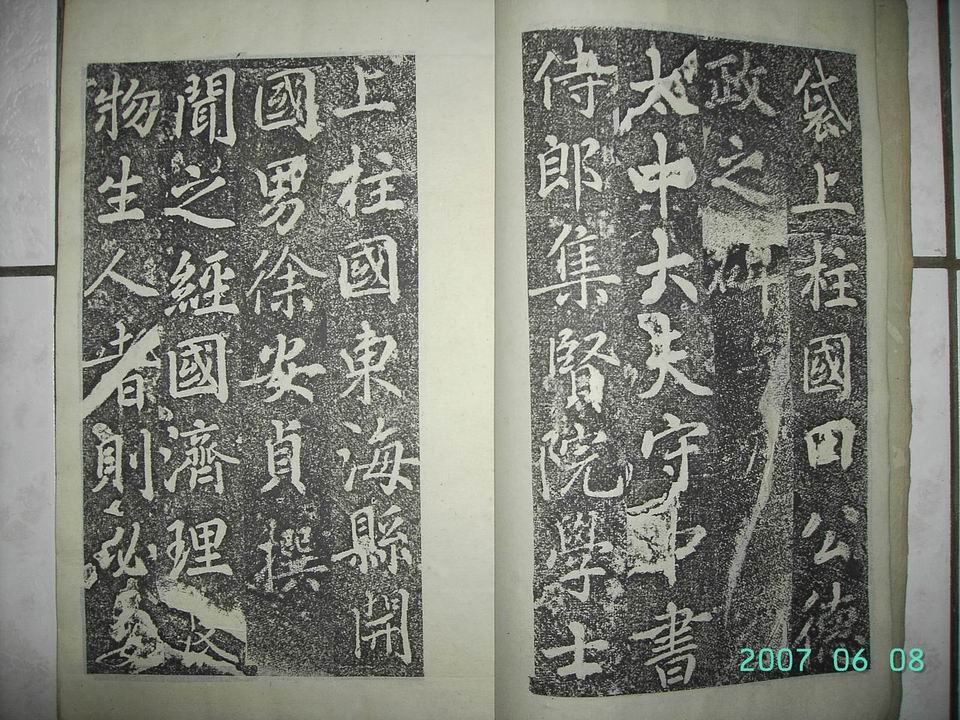 袋上柱國田公德
政之碑
太中大夫守中書
侍郎集賢院學士
上柱國東海縣開
國男徐安貞撰
聞之經國濟理及
物生人者則必委
2007 06 08